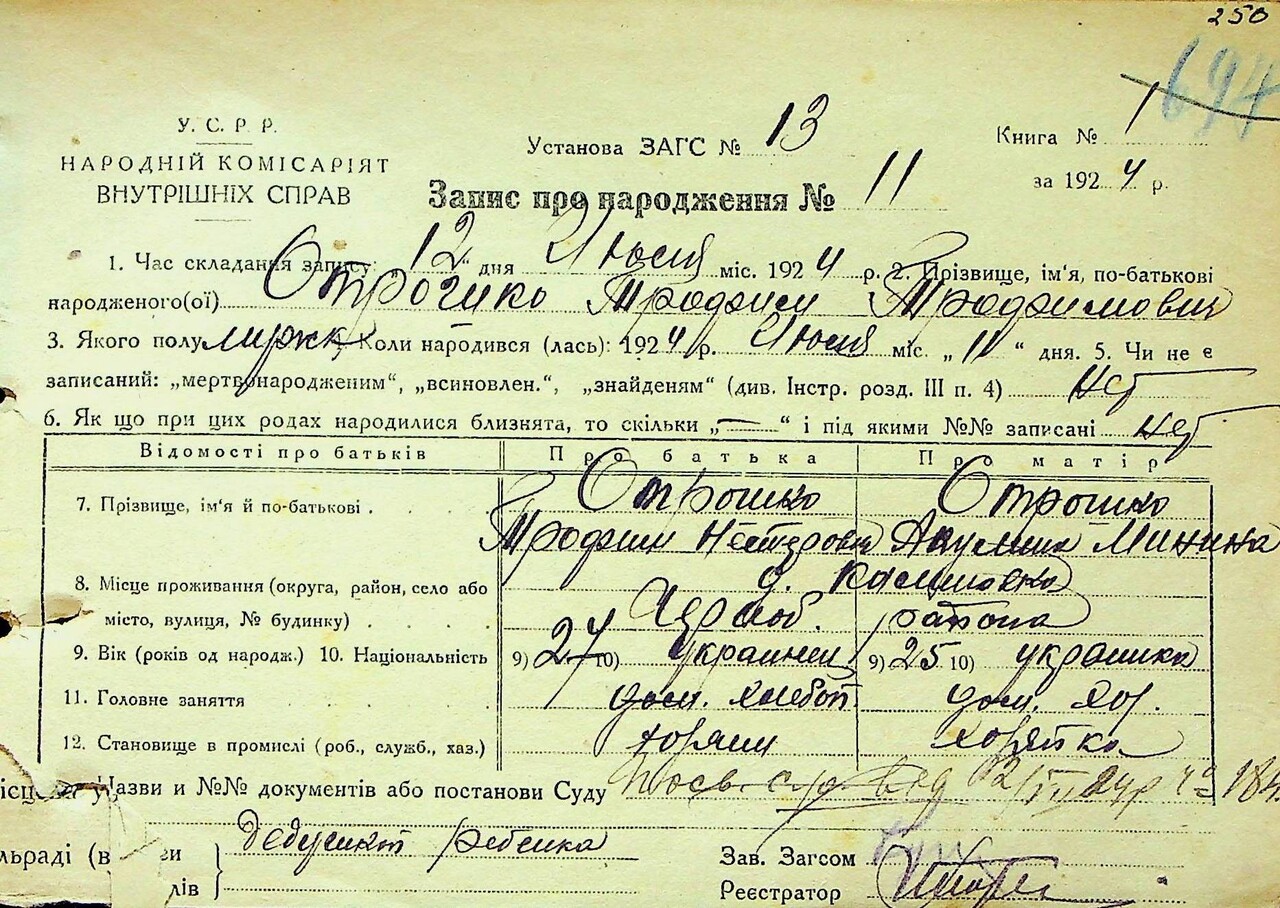 250
694
У. С. Р. Р.
НАРОДНІЙ КОМІСАРІЯТ
ВНУТРІШНІХ СПРАВ
Установа ЗАГС № 13
Книга № 1
за 1924 р.
Запис про народження № 11
1. Час складання запису: „12“ дня Июня міс. 1924 р. 2. Прізвище, ім'я, по-батькові
народженого(ої) Отрошко Трофим Трофимович
3. Якого полу мужск Коли народився (лась): 1924 р. Июня міс. „11“ дня. 5. Чи не є
записаний: „мертвонародженим“, „всиновлен.“, „знайденям“ (див. Інстр. розд. III п. 4) нет
6. Як що при цих родах народилися близнята, то скільки „—“ і під якими №№ записані нет
Відомості про батьків Про батька Про матір
7. Прізвище, ім'я й по-батькові Отрошко Отрошко
Трофим Нестерович Акулина Минина
8. Місце проживання (округа, район, село або
місто, вулиця, № будинку) района
9. Вік (років од народж.) 10. Національність 9) 27 10) украинец 9) 25 10) украинка
11. Головне заняття дом. хлебоп. дом. хоз.
12. Становище в промислі (роб., служб., хаз.) хозяин хозяйка
Назви и №№ документів або постанови Суду
дедушкой ребенка
льраді (в
ли
лів
Зав. Загсом
Реєстратор